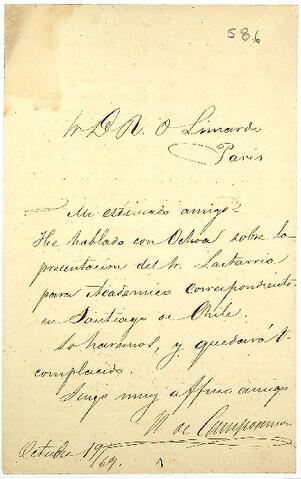 586
Sr D. R. O Limardo
Paris
Mi estimado amigo.
He hablado con Ochoa sobre la
presentacion del Sr. Lastarria
para Académico correspondiente
en Santiago de Chile.
Lo haremos, y quedará V
complacido.
Suyo muy affmo amigo
M de Campoamor
Octubre 19/69.